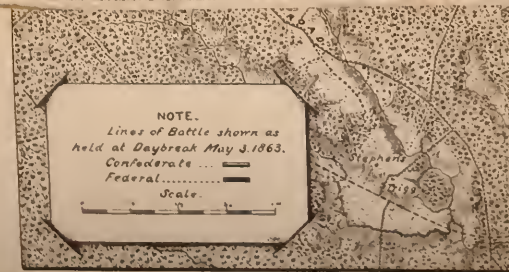 NOTE.
Lines of Battle shown as
held at Daybreak May 3. 1863.
Confederate ...
Federal..........
Scale.
Stephens
Trigg